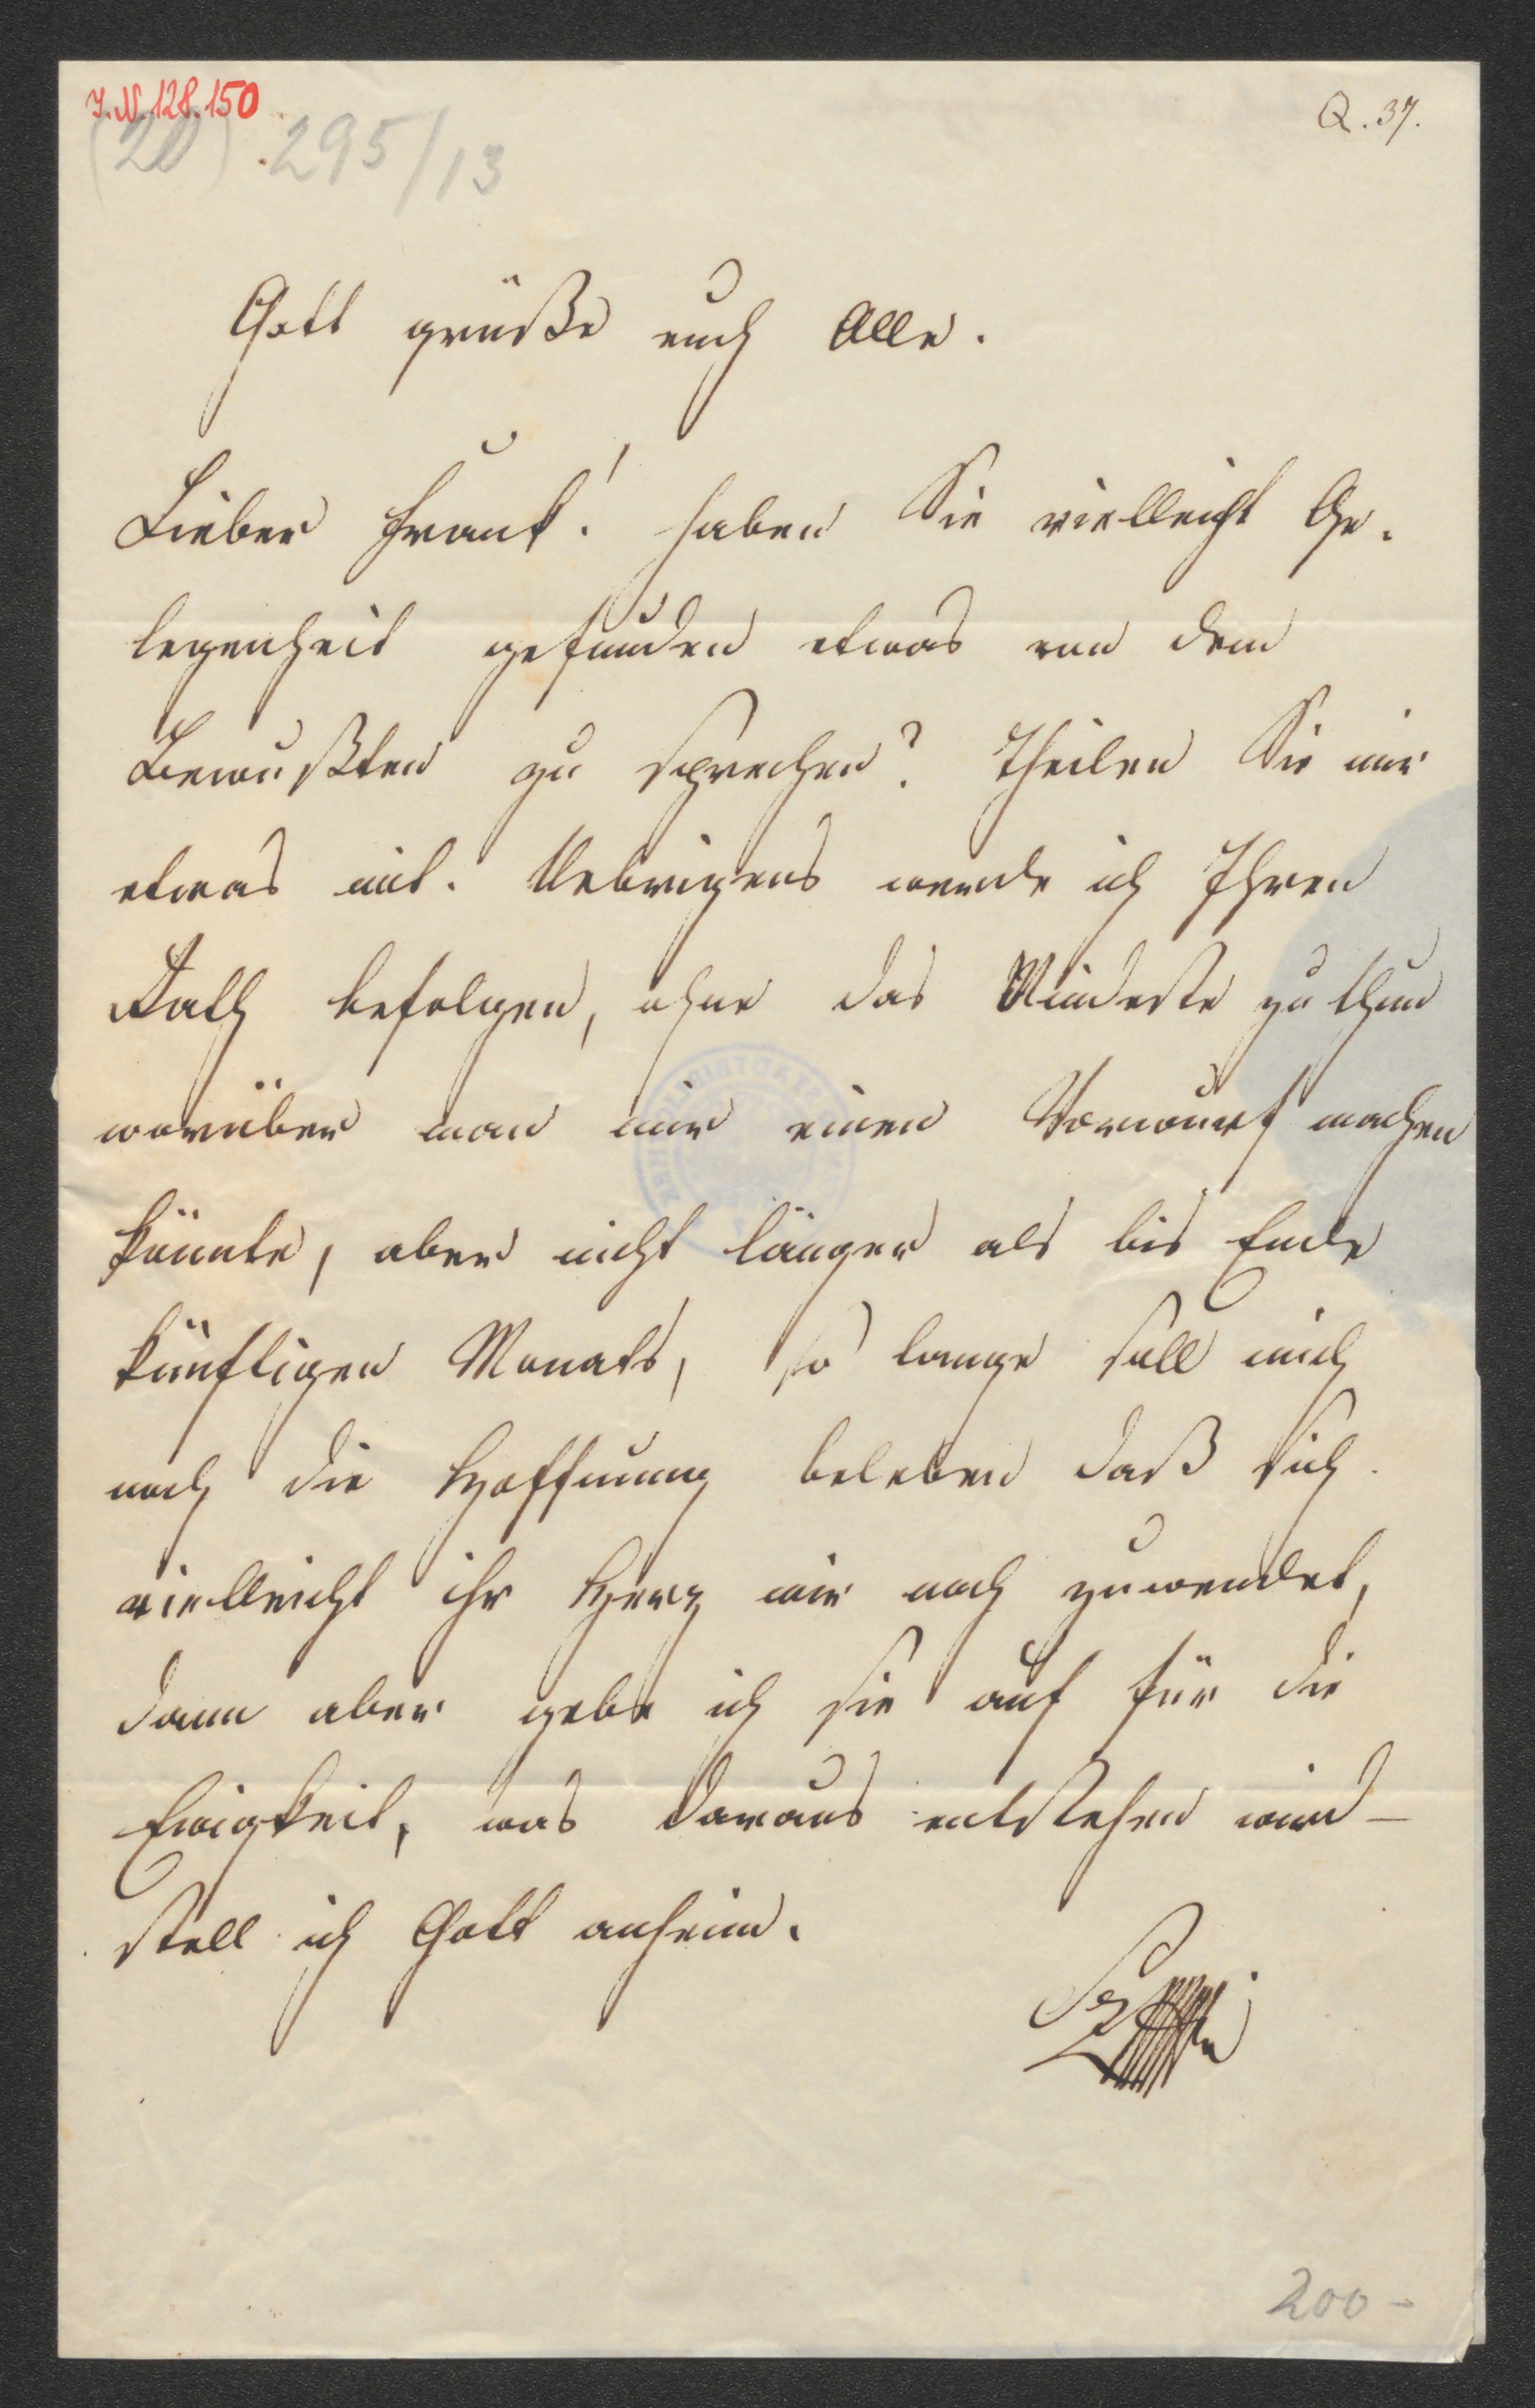 I.N. 128.150
(20) 295/13
Q. 37.
Gott grüße euch Alle.
Lieber Frank! haben Sie vielleicht Ge-
legenheit gefunden etwas von dem
Bewußten zu sprechen? Theilen Sie mir
etwas mit. Uebrigens werde ich Ihren
Rath befolgen, ohne das Mindeste zu thun
worüber man mir einen Vorwurf machen
könnte, aber nicht länger als bis Ende
künftigen Monats, so lange soll mich
noch die Hoffnung beleben daß sich
vielleicht ihr Herz mir noch zuwendet,
dann aber gebe ich sie auf für die
Ewigkeit, was daraus entstehen wird –
stell ich Gott anheim.
200 –